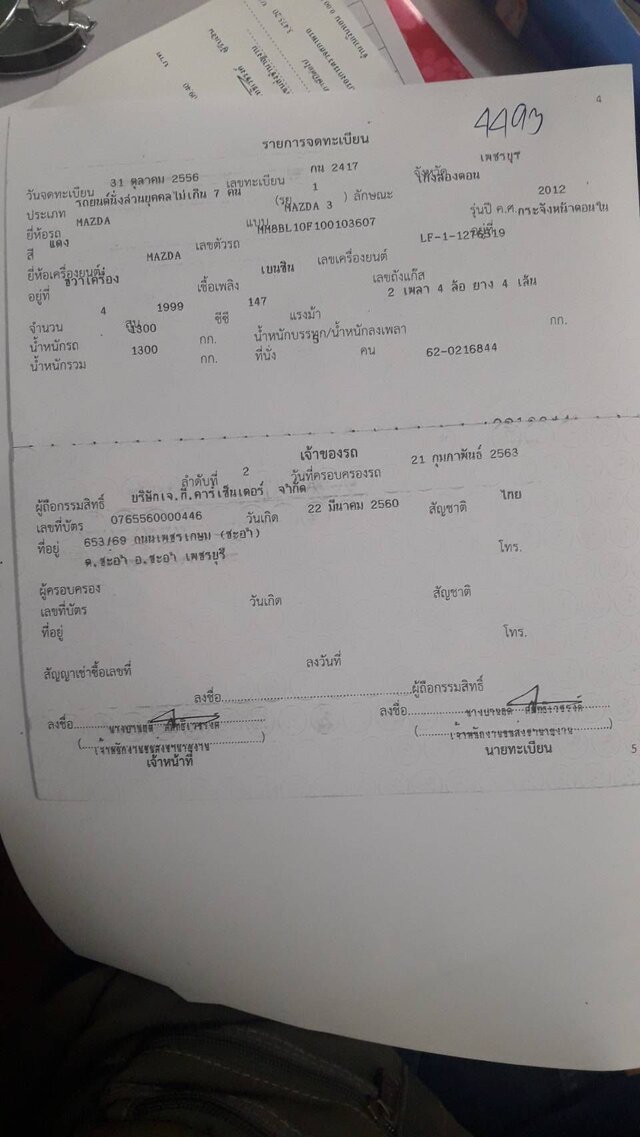 4493
4
รายการจดทะเบียน
วันจดทะเบียน 31 ตุลาคม 2556 เลขทะเบียน กน 2417 จังหวัด เพชรบุรี
ประเภท รถยนต์นั่งส่วนบุคคลไม่เกิน 7 คน (รย. 1 ) ลักษณะ เก๋งสองตอน
ยี่ห้อรถ MAZDA แบบ MAZDA 3 รุ่นปี ค.ศ. 2012
สี แดง เลขตัวรถ MM8BL10F100103607 อยู่ที่ กระจังหน้าตอนใน
ยี่ห้อเครื่องยนต์ MAZDA เลขเครื่องยนต์ LF-1-1276519
อยู่ที่ ขวาเครื่อง เชื้อเพลิง เบนซิน เลขถังแก๊ส
จำนวน 4 สูบ 1999 ซีซี 147 แรงม้า 2 เพลา 4 ล้อ ยาง 4 เส้น
น้ำหนักรถ 1300 กก. น้ำหนักบรรทุก/น้ำหนักลงเพลา กก.
น้ำหนักรวม 1300 กก. ที่นั่ง 5 คน 62-0216844
เจ้าของรถ
ลำดับที่ 2 วันที่ครอบครองรถ 21 กุมภาพันธ์ 2563
ผู้ถือกรรมสิทธิ์ บริษัทเจ.กี.คาร์เซ็นเตอร์ จำกัด
เลขที่บัตร 0765560000446 วันเกิด 22 มีนาคม 2560 สัญชาติ ไทย
ที่อยู่ 653/69 ถนนเพชรเกษม (ชะอำ) โทร.
ต.ชะอำ อ.ชะอำ เพชรบุรี
ผู้ครอบครอง
เลขที่บัตร วันเกิด สัญชาติ
ที่อยู่ โทร.
สัญญาเช่าซื้อเลขที่ ลงวันที่
ลงชื่อ ผู้ถือกรรมสิทธิ์
ลงชื่อ ลงชื่อ
เจ้าหน้าที่ นายทะเบียน
5